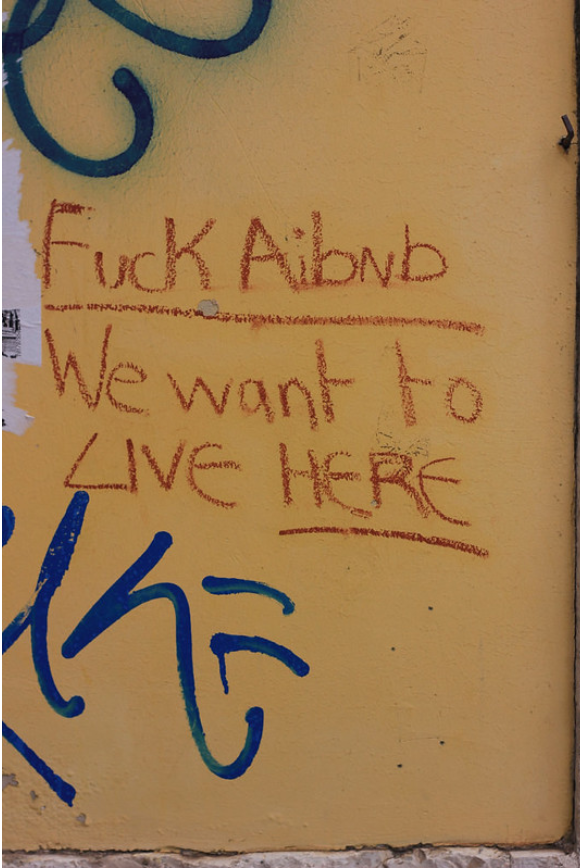 Fuck Aibnb
We want to
LIVE HERE